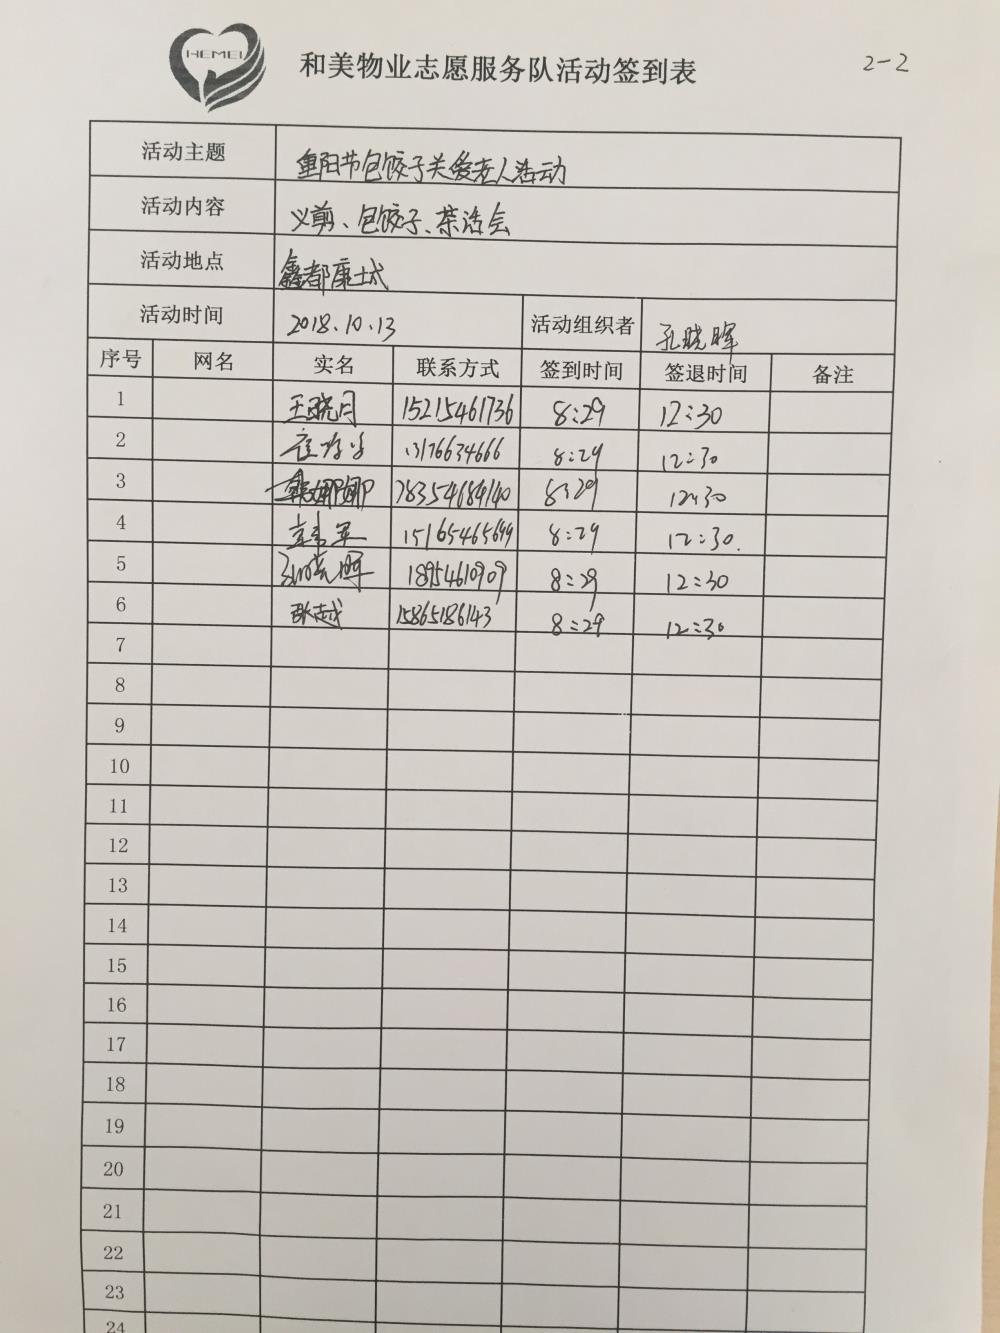 HEMEI
和美物业志愿服务队活动签到表
2-2
活动主题 重阳节包饺子关爱老人活动
活动内容 义剪、包饺子、茶话会
活动地点 鑫都康士式
活动时间 2018.10.13 活动组织者 孔晓晖
序号 网名 实名 联系方式 签到时间 签退时间 备注
1 王晓月 15215461736 8:29 12:30
2 13176634666 8:29 12:30
3 娜娜 78354684140 8:29 12:30
4 军 15165465699 8:29 12:30.
5 孔晓晖 18954610909 8:29 12:30
6 张越 15865186143 8:29 12:30
7
8
9
10
11
12
13
14
15
16
17
18
19
20
21
22
23
24